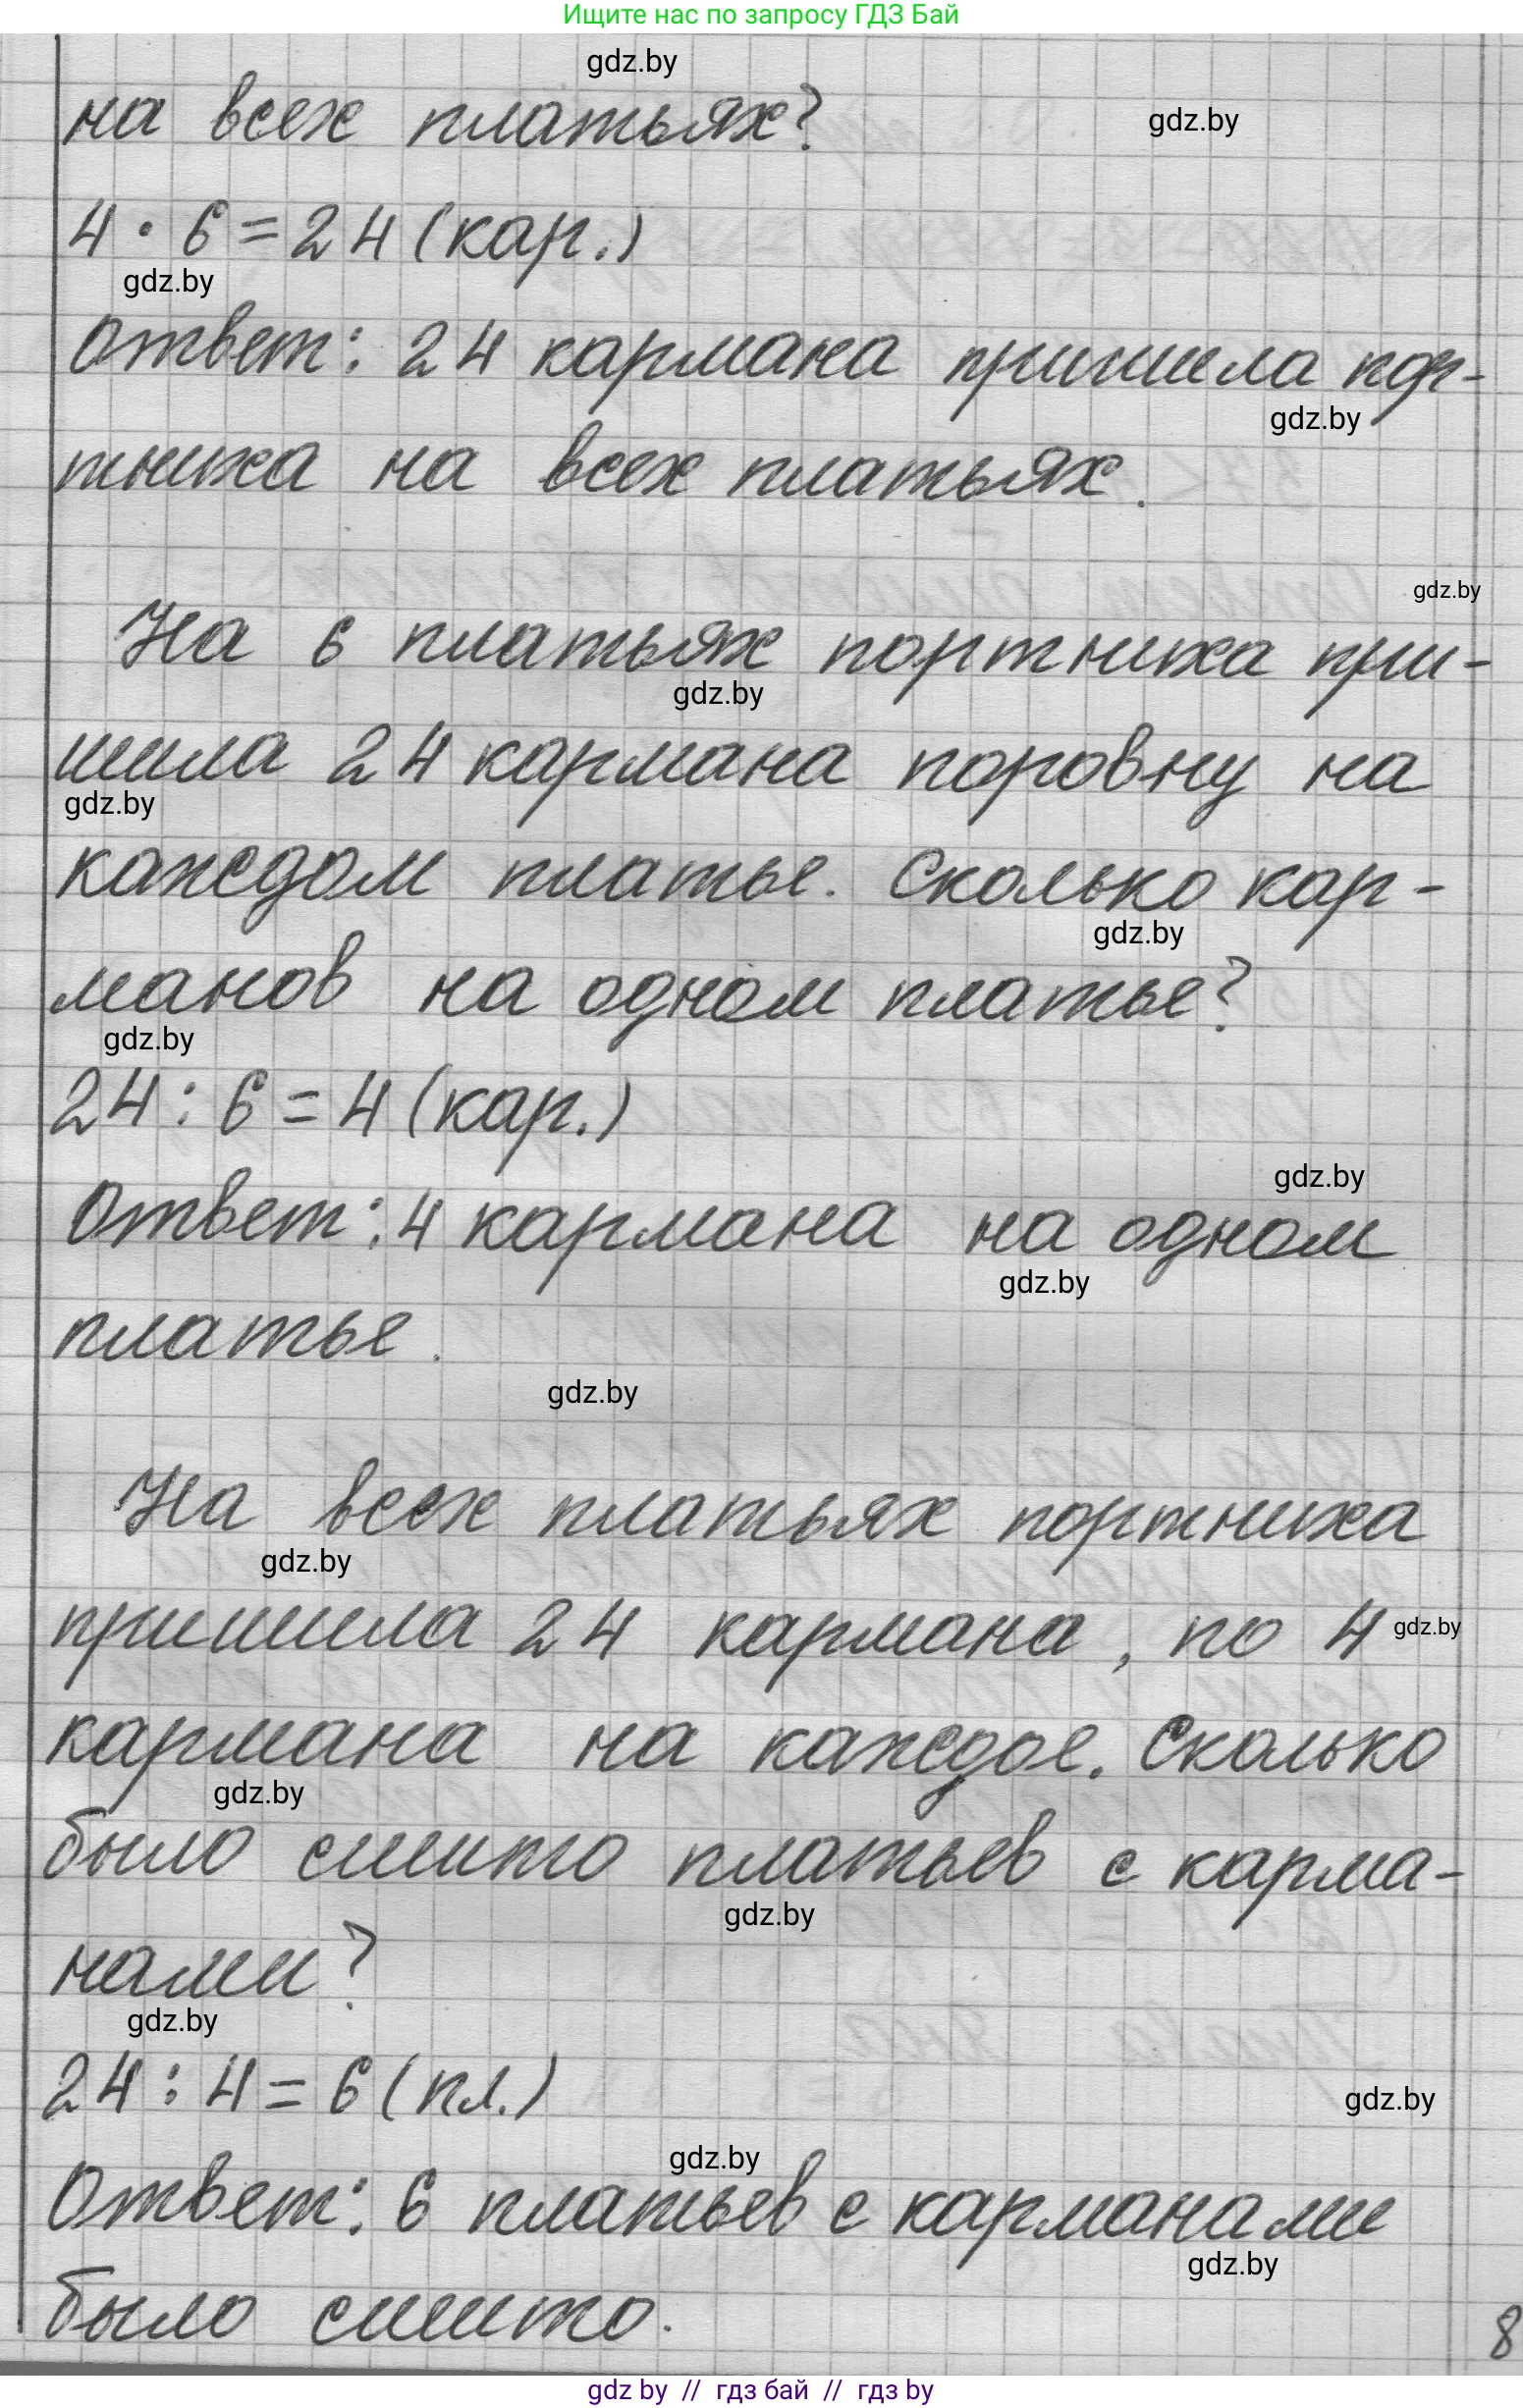 Ищите нас по запросу ГДЗ Бай
gdz.by
на всех платьях?
gdz.by
4 · 6 = 24 (кар.)
gdz.by
Ответ: 24 кармана пришила пор-
gdz.by
тниха на всех платьях.
gdz.by
На 6 платьях портниха при-
gdz.by
шила 24 кармана поровну на
gdz.by
каждом платье. Сколько кар-
gdz.by
манов на одном платье?
gdz.by
24 : 6 = 4 (кар.)
gdz.by
Ответ: 4 кармана на одном
gdz.by
платье.
gdz.by
На всех платьях портниха
gdz.by
пришила 24 кармана, по 4
gdz.by
кармана на каждое. Сколько
gdz.by
было сшито платьев с карма-
gdz.by
нами?
gdz.by
24 : 4 = 6 (пл.)
gdz.by
gdz.by
Ответ: 6 платьев с карманами
gdz.by
было сшито.
8
gdz by // гдз бай // гдз by